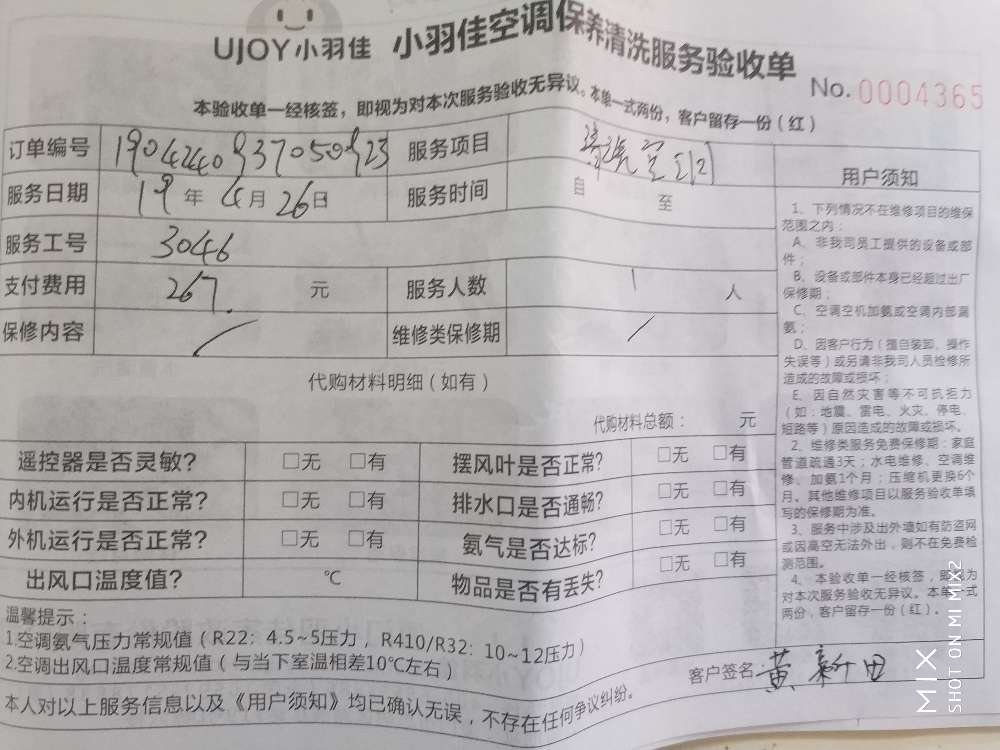 UJOY小羽佳 小羽佳空调保养清洗服务验收单
No.0004365
本验收单一经核签，即视为对本次服务验收无异议。本单一式两份，客户留存一份（红）
订单编号 服务项目
服务日期 19年4月26日 服务时间 自 至
服务工号 3046
支付费用 267. 元 服务人数 1 人
保修内容 / 维修类保修期 /
代购材料明细（如有）
代购材料总额： 元
遥控器是否灵敏？ □无 □有 摆风叶是否正常？ □无 □有
内机运行是否正常？ □无 □有 排水口是否通畅？ □无 □有
外机运行是否正常？ □无 □有 氨气是否达标？ □无 □有
出风口温度值？ ℃ 物品是否有丢失？ □无 □有
温馨提示：
1.空调氨气压力常规值（R22：4.5~5压力，R410/R32：10~12压力）
2.空调出风口温度常规值（与当下室温相差10℃左右）
客户签名：黄新田
本人对以上服务信息以及《用户须知》均已确认无误，不存在任何争议纠纷。
用户须知
1、下列情况不在维修项目的维保
范围之内：
A、非我司员工提供的设备或部
件；
B、设备或部件本身已经超过出厂
保修期；
C、空调空机加氨或空调内部漏
氨；
D、因客户行为（擅自装卸、操作
失误等）或另请非我司人员检修所
造成的故障或损坏；
E、因自然灾害等不可抗拒力
（如：地震、雷电、火灾、停电、
短路等）原因造成的故障或损坏。
2、维修类服务免费保修期：家庭
管道疏通3天；水电维修、空调维
修、加氨1个月；压缩机更换6个
月。其他维修项目以服务验收单填
写的保修期为准。
3、服务中涉及出外墙如有防盗网
或因高空无法外出，则不在免费检
测范围。
4、本验收单一经核签，即视为
对本次服务验收无异议。本单一式
两份，客户留存一份（红）。
MIX
SHOT ON MI MIX2